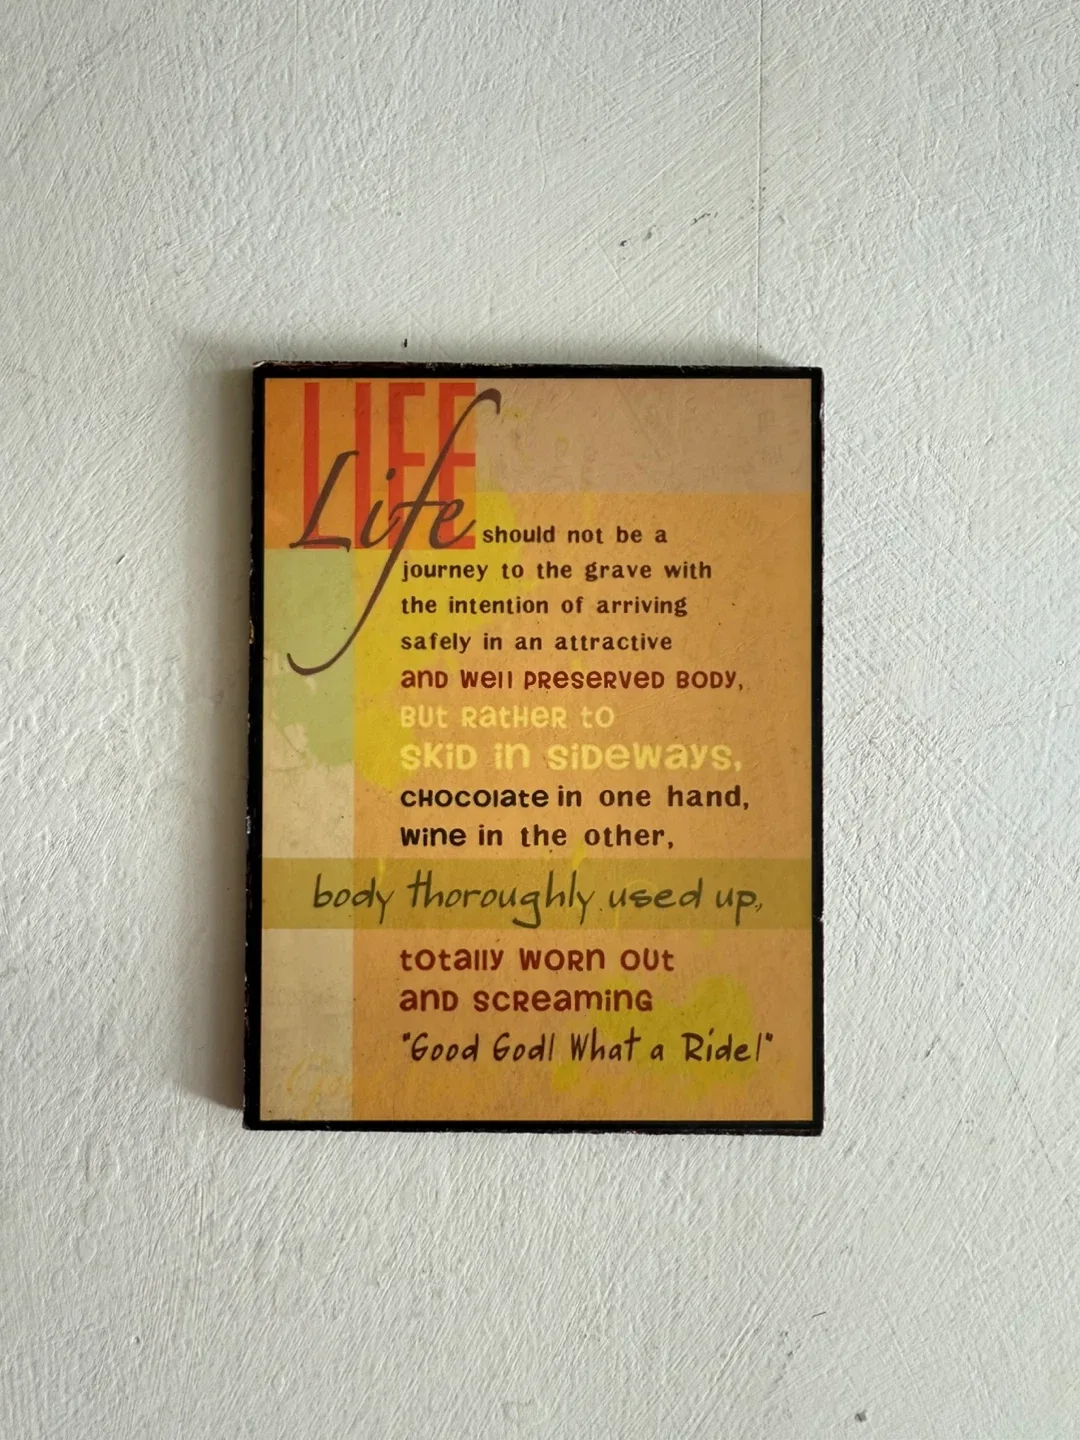 LIFE
Life should not be a
journey to the grave with
the intention of arriving
safely in an attractive
and well preserved body,
but rather to
skid in sideways,
chocolate in one hand,
wine in the other,
body thoroughly used up,
totally worn out
and screaming
"Good God! What a Ride!"